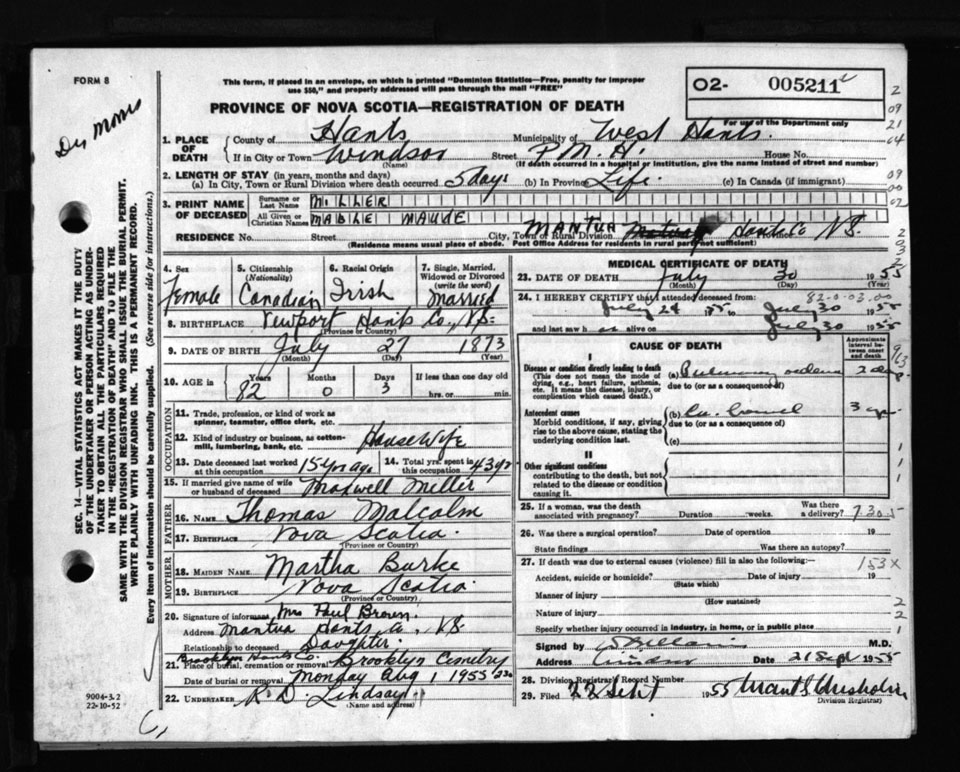 FORM 8
This form, if placed in an envelope, on which is printed "Dominion Statistics—Free, penalty for improper
use $50," and properly addressed will pass through the mail "FREE"
O2- 005211
For use of the Department only
PROVINCE OF NOVA SCOTIA—REGISTRATION OF DEATH
SEC. 14—VITAL STATISTICS ACT MAKES IT THE DUTY
OF THE UNDERTAKER OR PERSON ACTING AS UNDER-
TAKER TO OBTAIN ALL THE PARTICULARS REQUIRED
IN THE "REGISTRATION OF DEATH" AND TO FILE THE
SAME WITH THE DIVISION REGISTRAR WHO SHALL ISSUE THE BURIAL PERMIT.
WRITE PLAINLY WITH UNFADING INK. THIS IS A PERMANENT RECORD.
Every item of information should be carefully supplied. (See reverse side for instructions.)
1. PLACE OF DEATH County of Hants Municipality of West Hants.
If in City or Town Windsor Street P.M.H. House No.
(Name) (If death occurred in a hospital or institution, give the name instead of street and number)
2. LENGTH OF STAY (in years, months and days)
(a) In City, Town or Rural Division where death occurred 5 days (b) In Province Life. (c) In Canada (if immigrant)
3. PRINT NAME OF DECEASED Surname or Last Name MILLER
All Given or Christian Names MABLE MAUDE
RESIDENCE No. Street City, Town or Rural Division MANTUA Hants Co Province N.S.
(Residence means usual place of abode. Post Office Address for residents in rural parts not sufficient)
4. Sex Female
5. Citizenship (Nationality) Canadian
6. Racial Origin Irish
7. Single, Married, Widowed or Divorced (write the word) Married
8. BIRTHPLACE Newport Hants Co., N.S.
(Province or Country)
9. DATE OF BIRTH July 27 1873
(Month) (Day) (Year)
10. AGE in Years 82 Months 0 Days 3 If less than one day old hrs. or min.
OCCUPATION
11. Trade, profession, or kind of work as
spinner, teamster, office clerk, etc.
12. Kind of industry or business, as cotten-
mill, lumbering, bank, etc. HouseWife
13. Date deceased last worked at this occupation 15 yrs ago 14. Total yrs. spent in this occupation 43 yrs
15. If married give name of wife or husband of deceased Maxwell Miller
FATHER
16. NAME Thomas Malcolm
17. BIRTHPLACE Nova Scotia.
(Province or Country)
MOTHER
18. MAIDEN NAME Martha Burke
19. BIRTHPLACE Nova Scotia.
(Province or Country)
20. Signature of informant Mrs Paul Brown.
Address Mantua Hants Co., N.S.
Relationship to deceased Daughter.
Brooklyn Hants Co.
21. Place of burial, cremation or removal Brooklyn Cemetry
Date of burial or removal Monday Aug 1 1955 2 30
22. UNDERTAKER R. D. Lindsay
(Name and address)
9004-3.2
22-10-52
MEDICAL CERTIFICATE OF DEATH
23. DATE OF DEATH July 30 1955
(Month) (Day)
82-0-03.00
24. I HEREBY CERTIFY that I attended deceased from
July 24 1955 to July 30 1955
and last saw h alive on July 30 1955
CAUSE OF DEATH
Approximate interval between onset and death
I
Disease or condition directly leading to death
(This does not mean the mode of
dying, e.g., heart failure, asthenia,
etc. It means the disease, injury, or
complication which caused death.)
(a) Pulmonary oedema 2 days
due to (or as a consequence of)
Antecedent causes
Morbid conditions, if any, giving
rise to the above cause, stating the
underlying condition last.
(b) Ca. bowel 3 yrs
due to (or as a consequence of)
(c)
II
Other significant conditions
contributing to the death, but not
related to the disease or condition
causing it.
25. If a woman, was the death associated with pregnancy? Duration weeks. Was there a delivery? 7.30.5
26. Was there a surgical operation? Date of operation 19
State findings Was there an autopsy?
27. If death was due to external causes (violence) fill in also the following:- 153X
Accident, suicide or homicide? Date of injury 19
(State which)
Manner of injury
(How sustained)
Nature of injury
Specify whether injury occurred in industry, in home, or in public place
Signed by M.D.
Address Windsor Date 21 Sept 1955
28. Division Registrar's Record Number
29. Filed 22 Sept 1955
Division Registrar